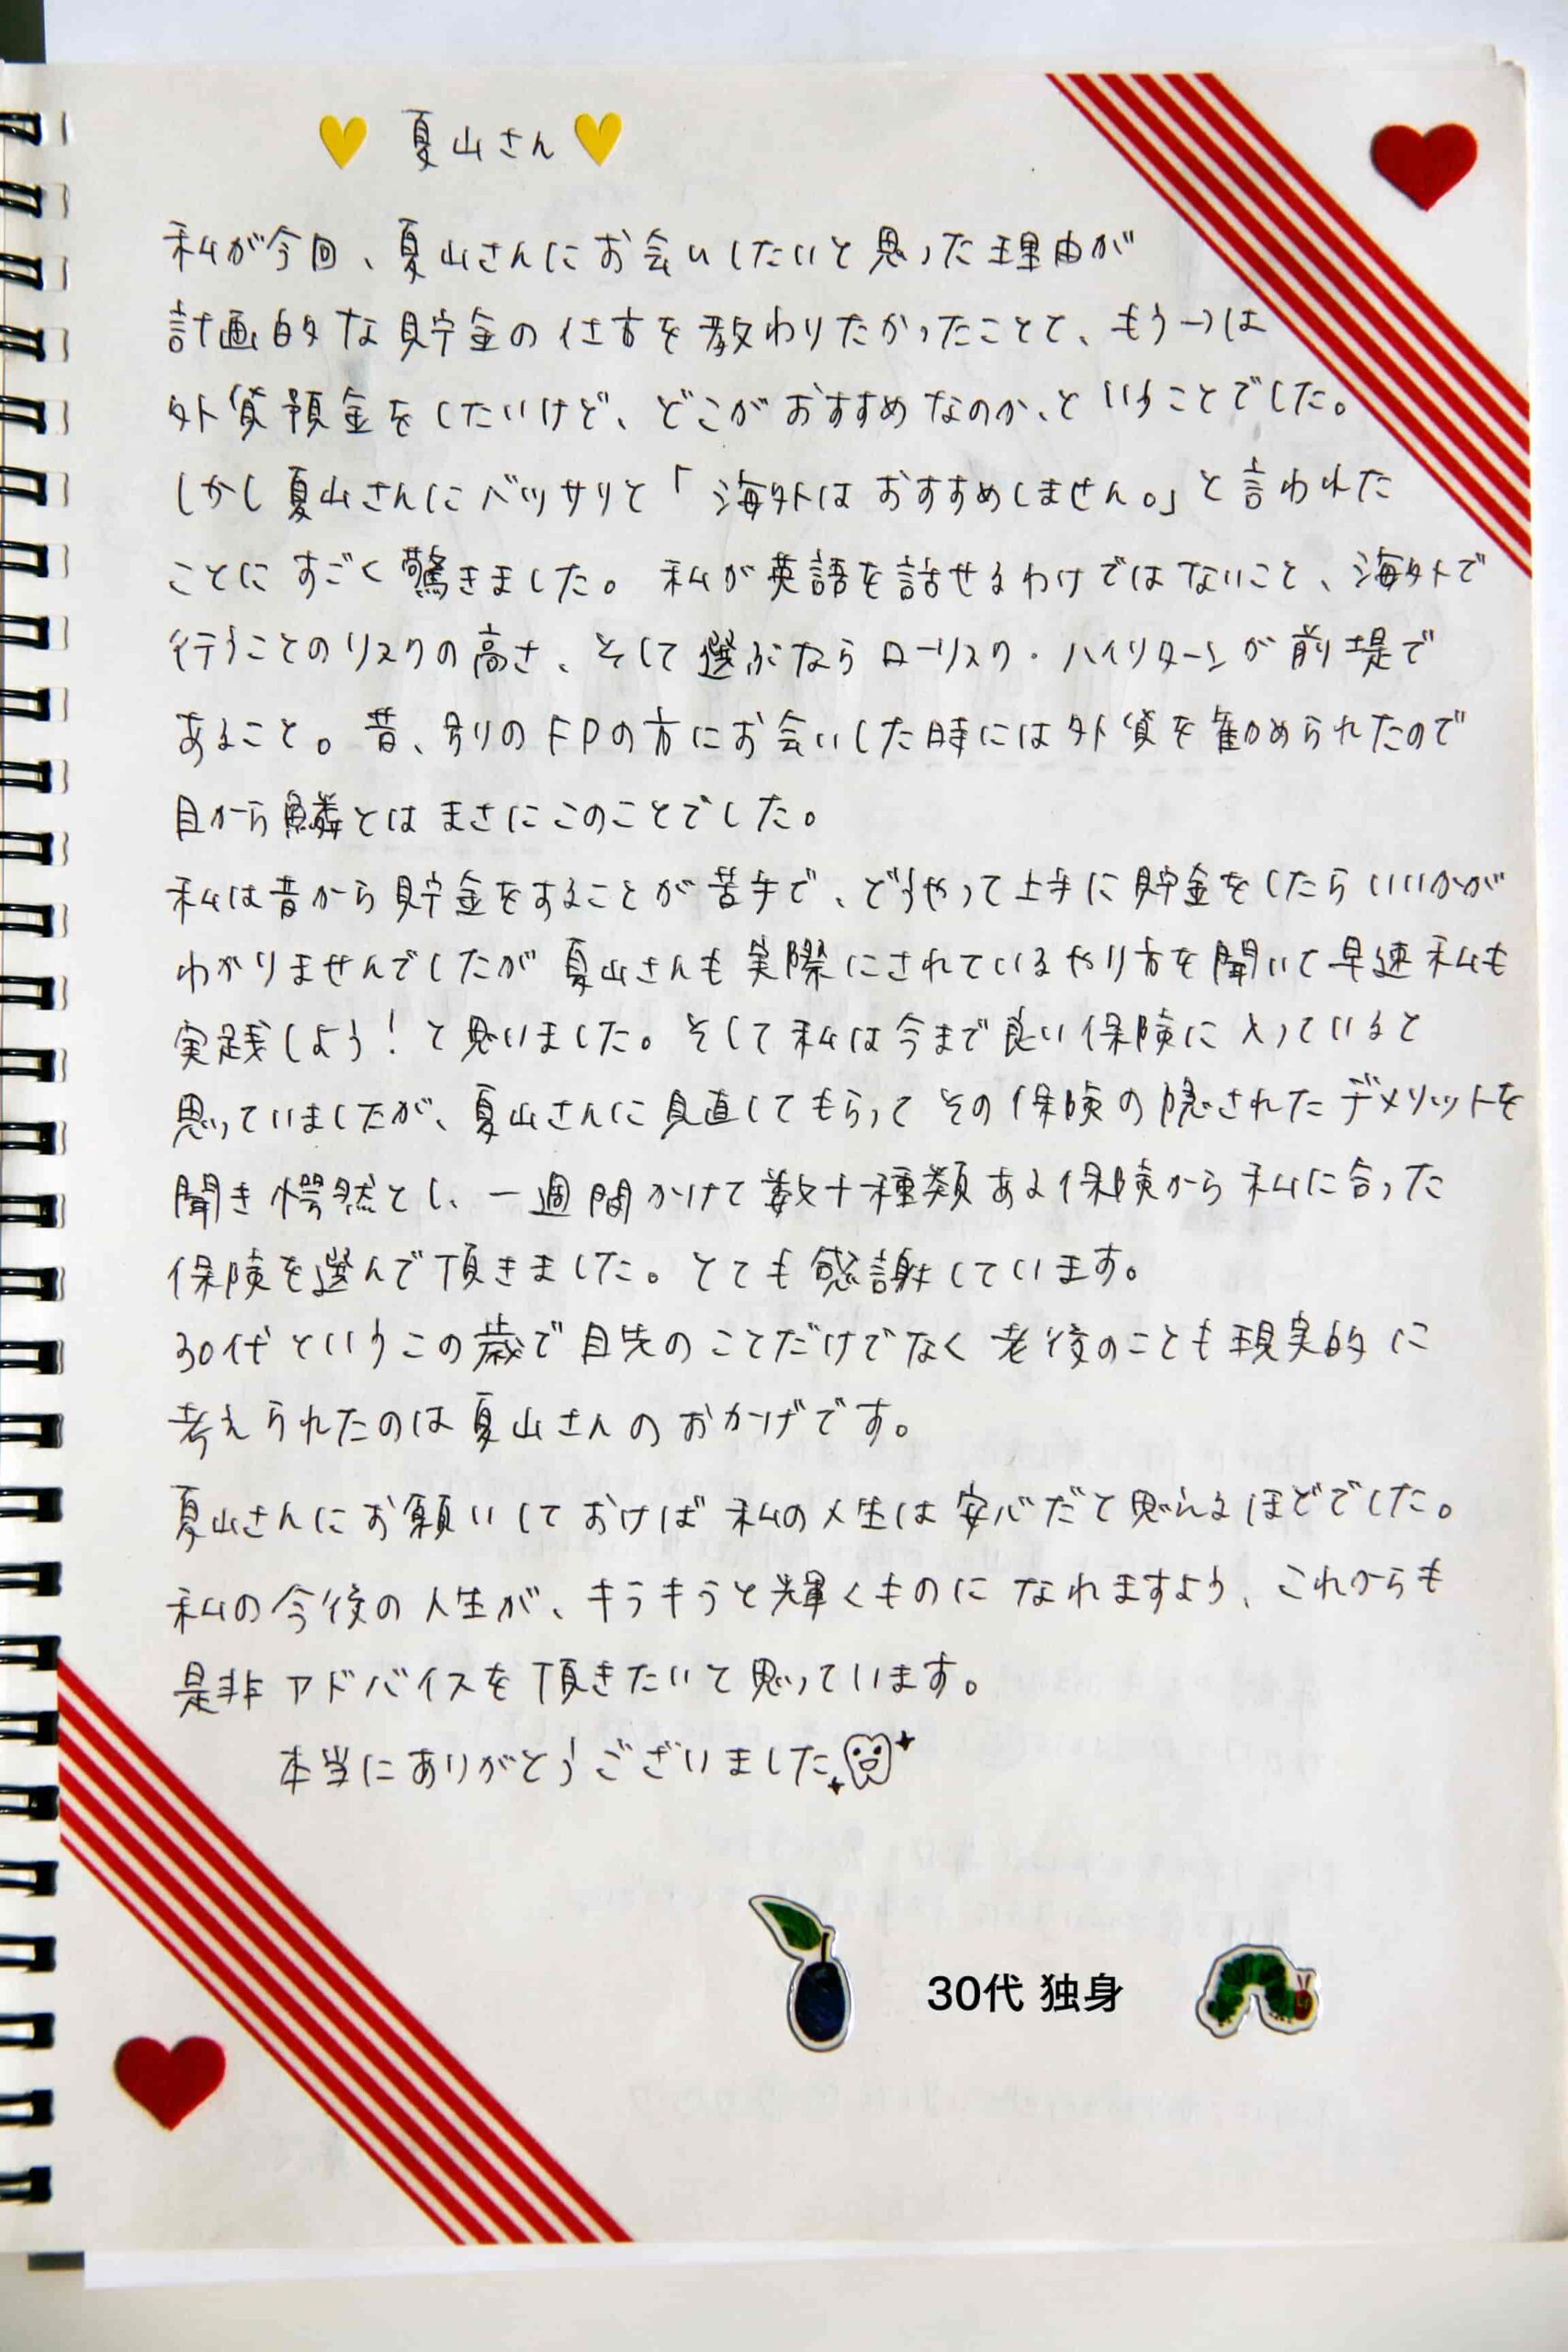 夏山さん
私が今回、夏山さんにお会いしたいと思った理由が
計画的な貯金の仕方を教わりたかったことと、もう一つは
外貨預金をしたいけど、どこがおすすめなのか、ということでした。
しかし夏山さんにバッサリと「海外はおすすめしません。」と言われた
ことにすごく驚きました。私が英語を話せるわけではないこと、海外で
行うことのリスクの高さ、そして選ぶならローリスク・ハイリターンが前堤で
あること。昔、別のFPの方にお会いした時には外貨を勧められたので
目から鱗とはまさにこのことでした。
私は昔から貯金をすることが苦手で、どうやって上手に貯金をしたらいいかが
わかりませんでしたが夏山さんも実際にされているやり方を聞いて早速私も
実践しよう!と思いました。そして私は今まで良い保険に入っていると
思っていましたが、夏山さんに見直してもらってその保険の隠されたデメリットを
聞き愕然とし、一週間かけて数十種類ある保険から私に合った
保険を選んで頂きました。とても感謝しています。
30代というこの歳で目先のことだけでなく老後のことも現実的に
考えられたのは夏山さんのおかげです。
夏山さんにお願いしておけば私の人生は安心だと思えるほどでした。
私の今後の人生が、キラキラと輝くものになれますよう、これからも
是非アドバイスを頂きたいと思っています。
本当にありがとうございました
30代 独身